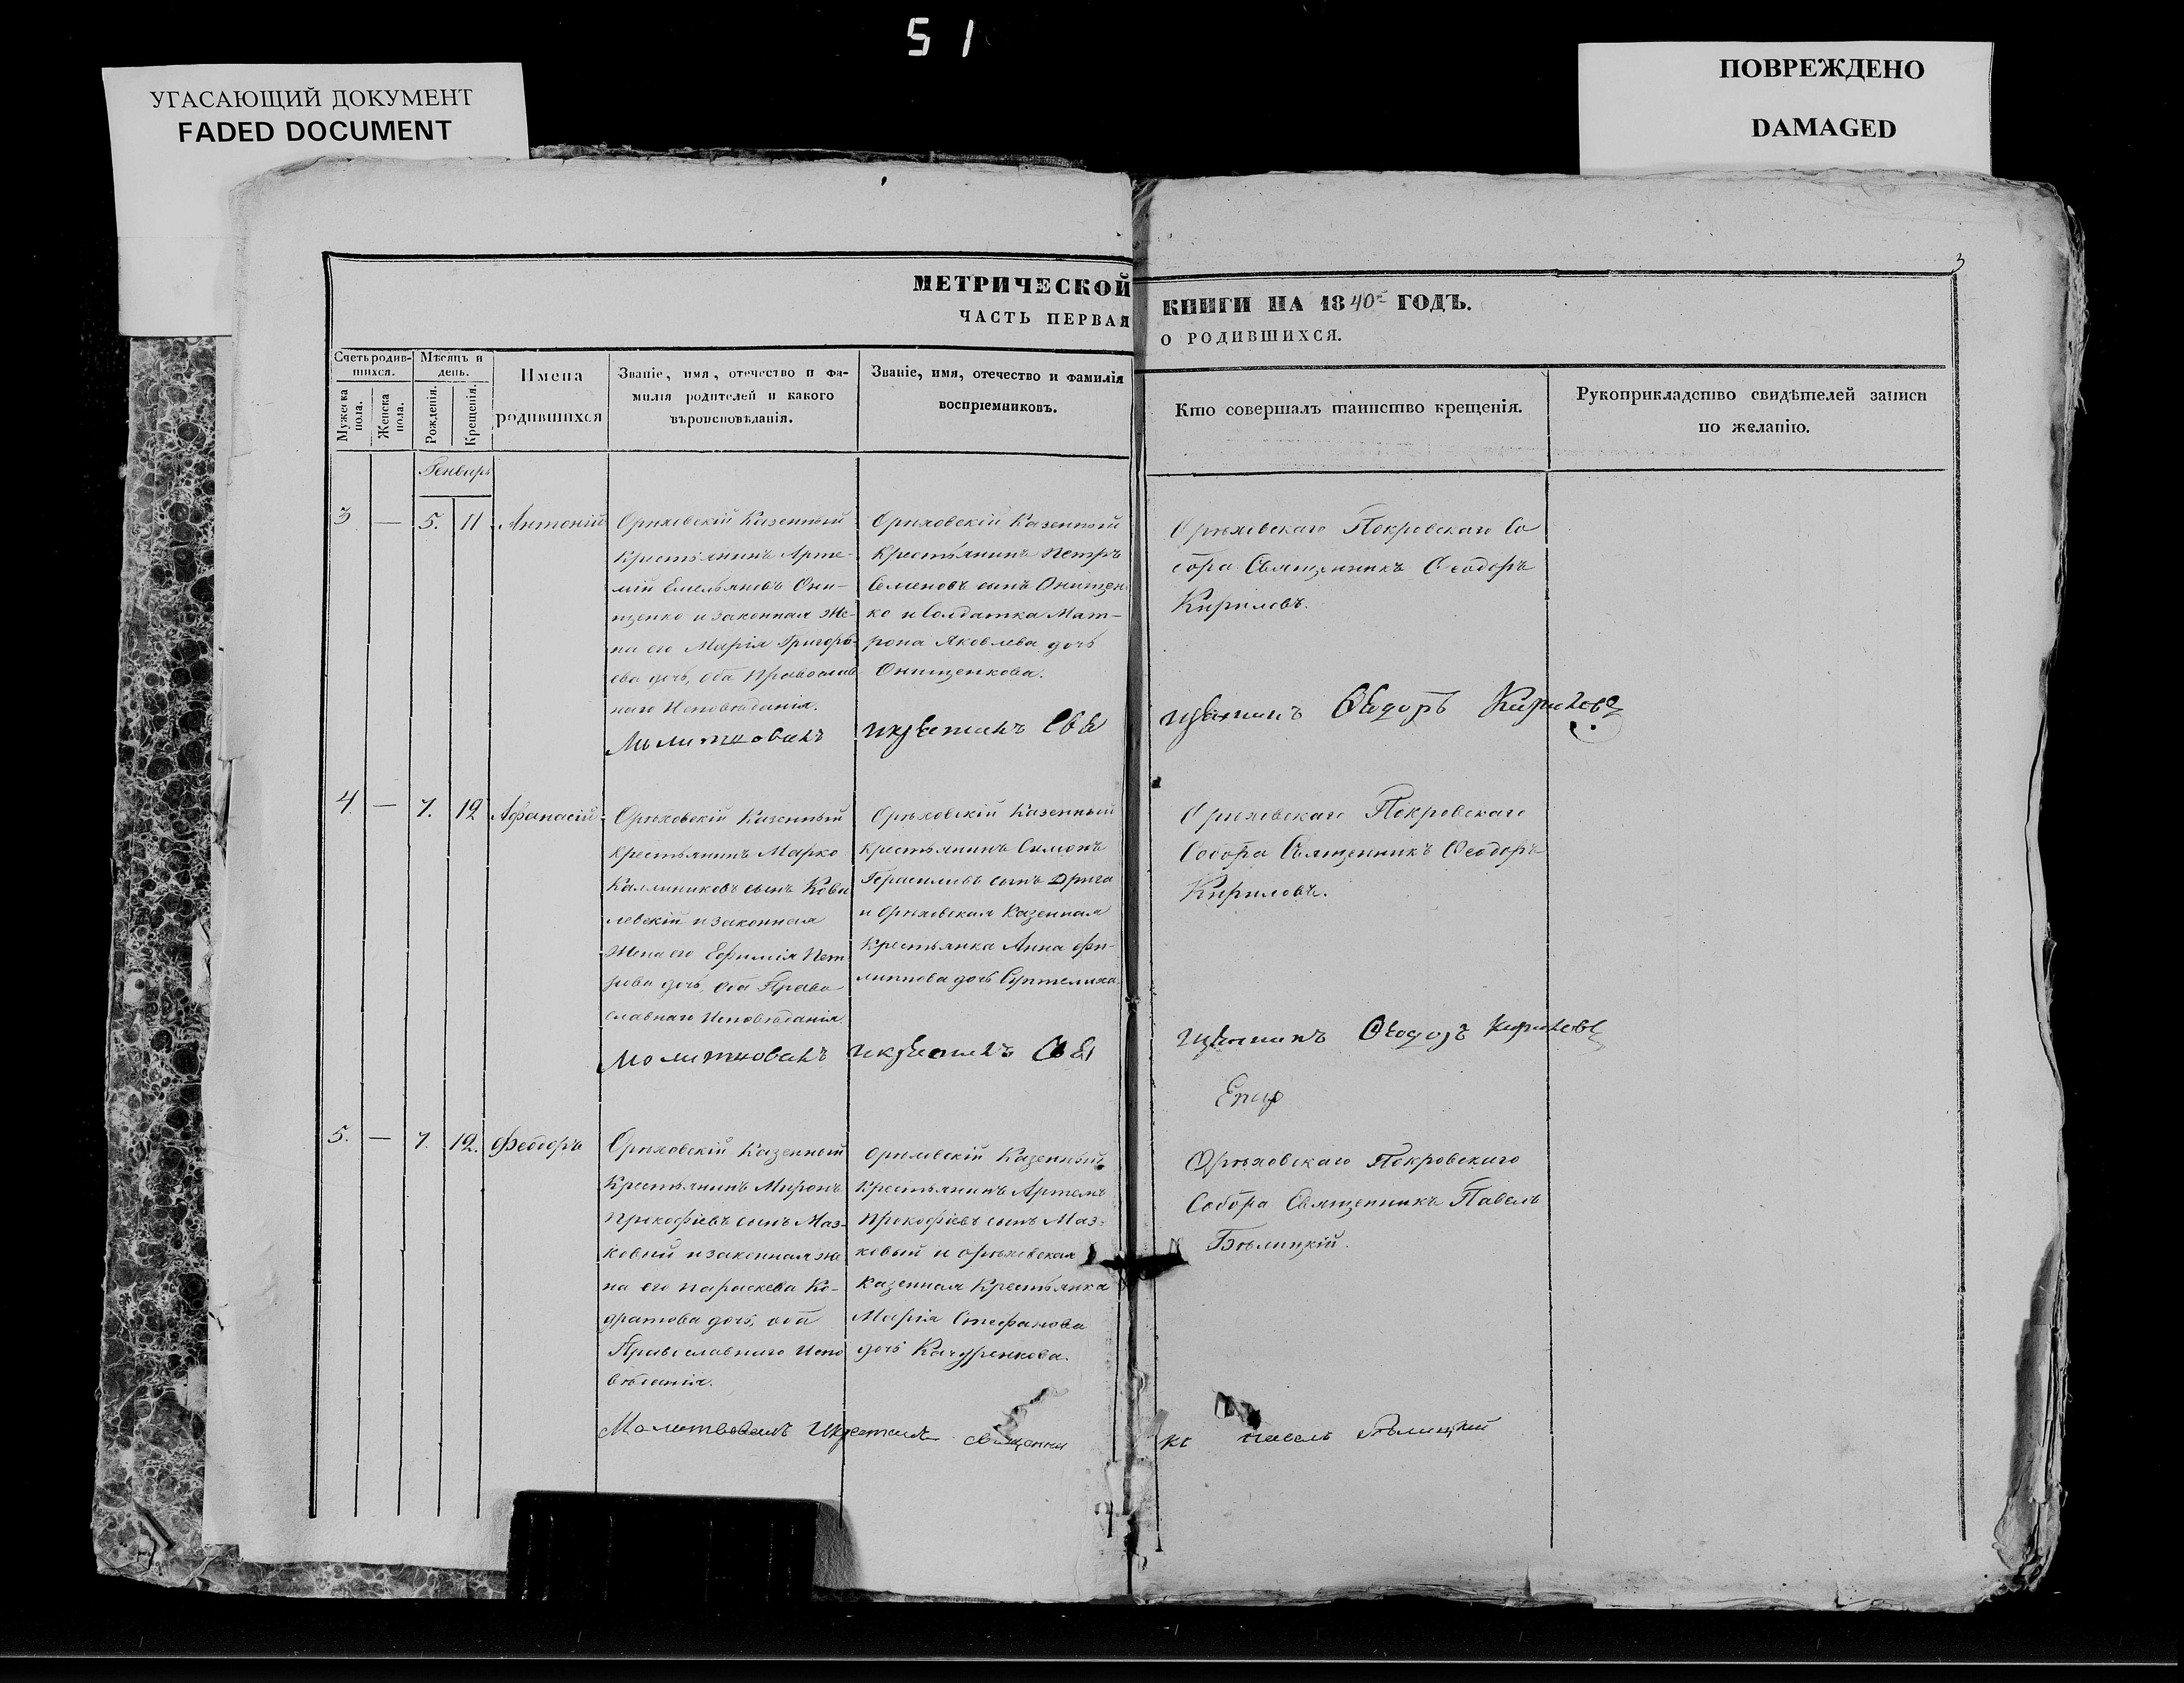 51
УГАСАЮЩИЙ ДОКУМЕНТ
FADED DOCUMENT
ПОВРЕЖДЕНО
DAMAGED
3
МЕТРИЧЕСКОЙ
КНИГИ НА 1840 ГОДЪ.
ЧАСТЬ ПЕРВАЯ
О РОДИВШИХСЯ.
Счетъ родив-
шихся.
Мужеска
пола.
Женска
пола.
Мѣсяцъ и
день.
Рожденія.
Крещенія.
Имена
родившихся
Званіе, имя, отечество и фа-
милія родителей и какого
вѣроисповѣданія.
Званіе, имя, отечество и фамилія
воспріемниковъ.
Кто совершалъ таинство крещенія.
Рукоприкладство свидѣтелей записи
по желанію.
Генварь
3 — 5. 11 Антоній
Орѣховскій Казенный
Крестьянинъ Арте-
мій Емельяновъ Они-
щенко и законная Же-
на его Марія Григорь-
ева дочь, оба Православ
наго Исповѣданія.
Орѣховскій Казенный
Крестьянинъ Петръ
Семеновъ сынъ Онищен
ко и Солдатка Мат-
рона Яковлева дочь
Онищенкова.
Орѣховскаго Покровскаго Со
бора Священникъ Феодоръ
Кириловъ.
Молитвовалъ икрестилъ Свя
щенникъ Феодоръ Кириловъ
4. — 7. 12 Афанасій
Орѣховскій Казенный
Крестьянинъ Марко
Каллиниковъ сынъ Кова
левскій и законная
Жена его Ефимія Пет
рова дочь, оба Право
славнаго Исповѣданія.
Орѣховскій Казенный
Крестьянинъ Симонъ
Герасимовъ сынъ Дрига
и Орѣховская Казенная
Крестьянка Анна Фи-
липпова дочь
Орѣховскаго Покровскаго
Собора Священникъ Феодоръ
Кириловъ.
Молитвовалъ икрестилъ Свя
щенникъ Феодоръ Кириловъ
5. — 7. 12. Федоръ
Орѣховскій Казенный
Крестьянинъ Миронъ
Прокофіевъ сынъ Маз-
ковый и законная же
на его Параскева Ко-
дратова дочь, оба
Православнаго Испо
вѣданія.
Казенный
Крестьянинъ Артемъ
Прокофіевъ сынъ Маз-
ковый и орѣховская
Казенная Крестьянка
Марія Стефанова
дочь Качуренкова.
Орѣховскаго Покровскаго
Собора Священникъ Павелъ
Бѣлицкій.
Молитвовалъ икрестилъ священни
къ Павелъ Бѣлицкій